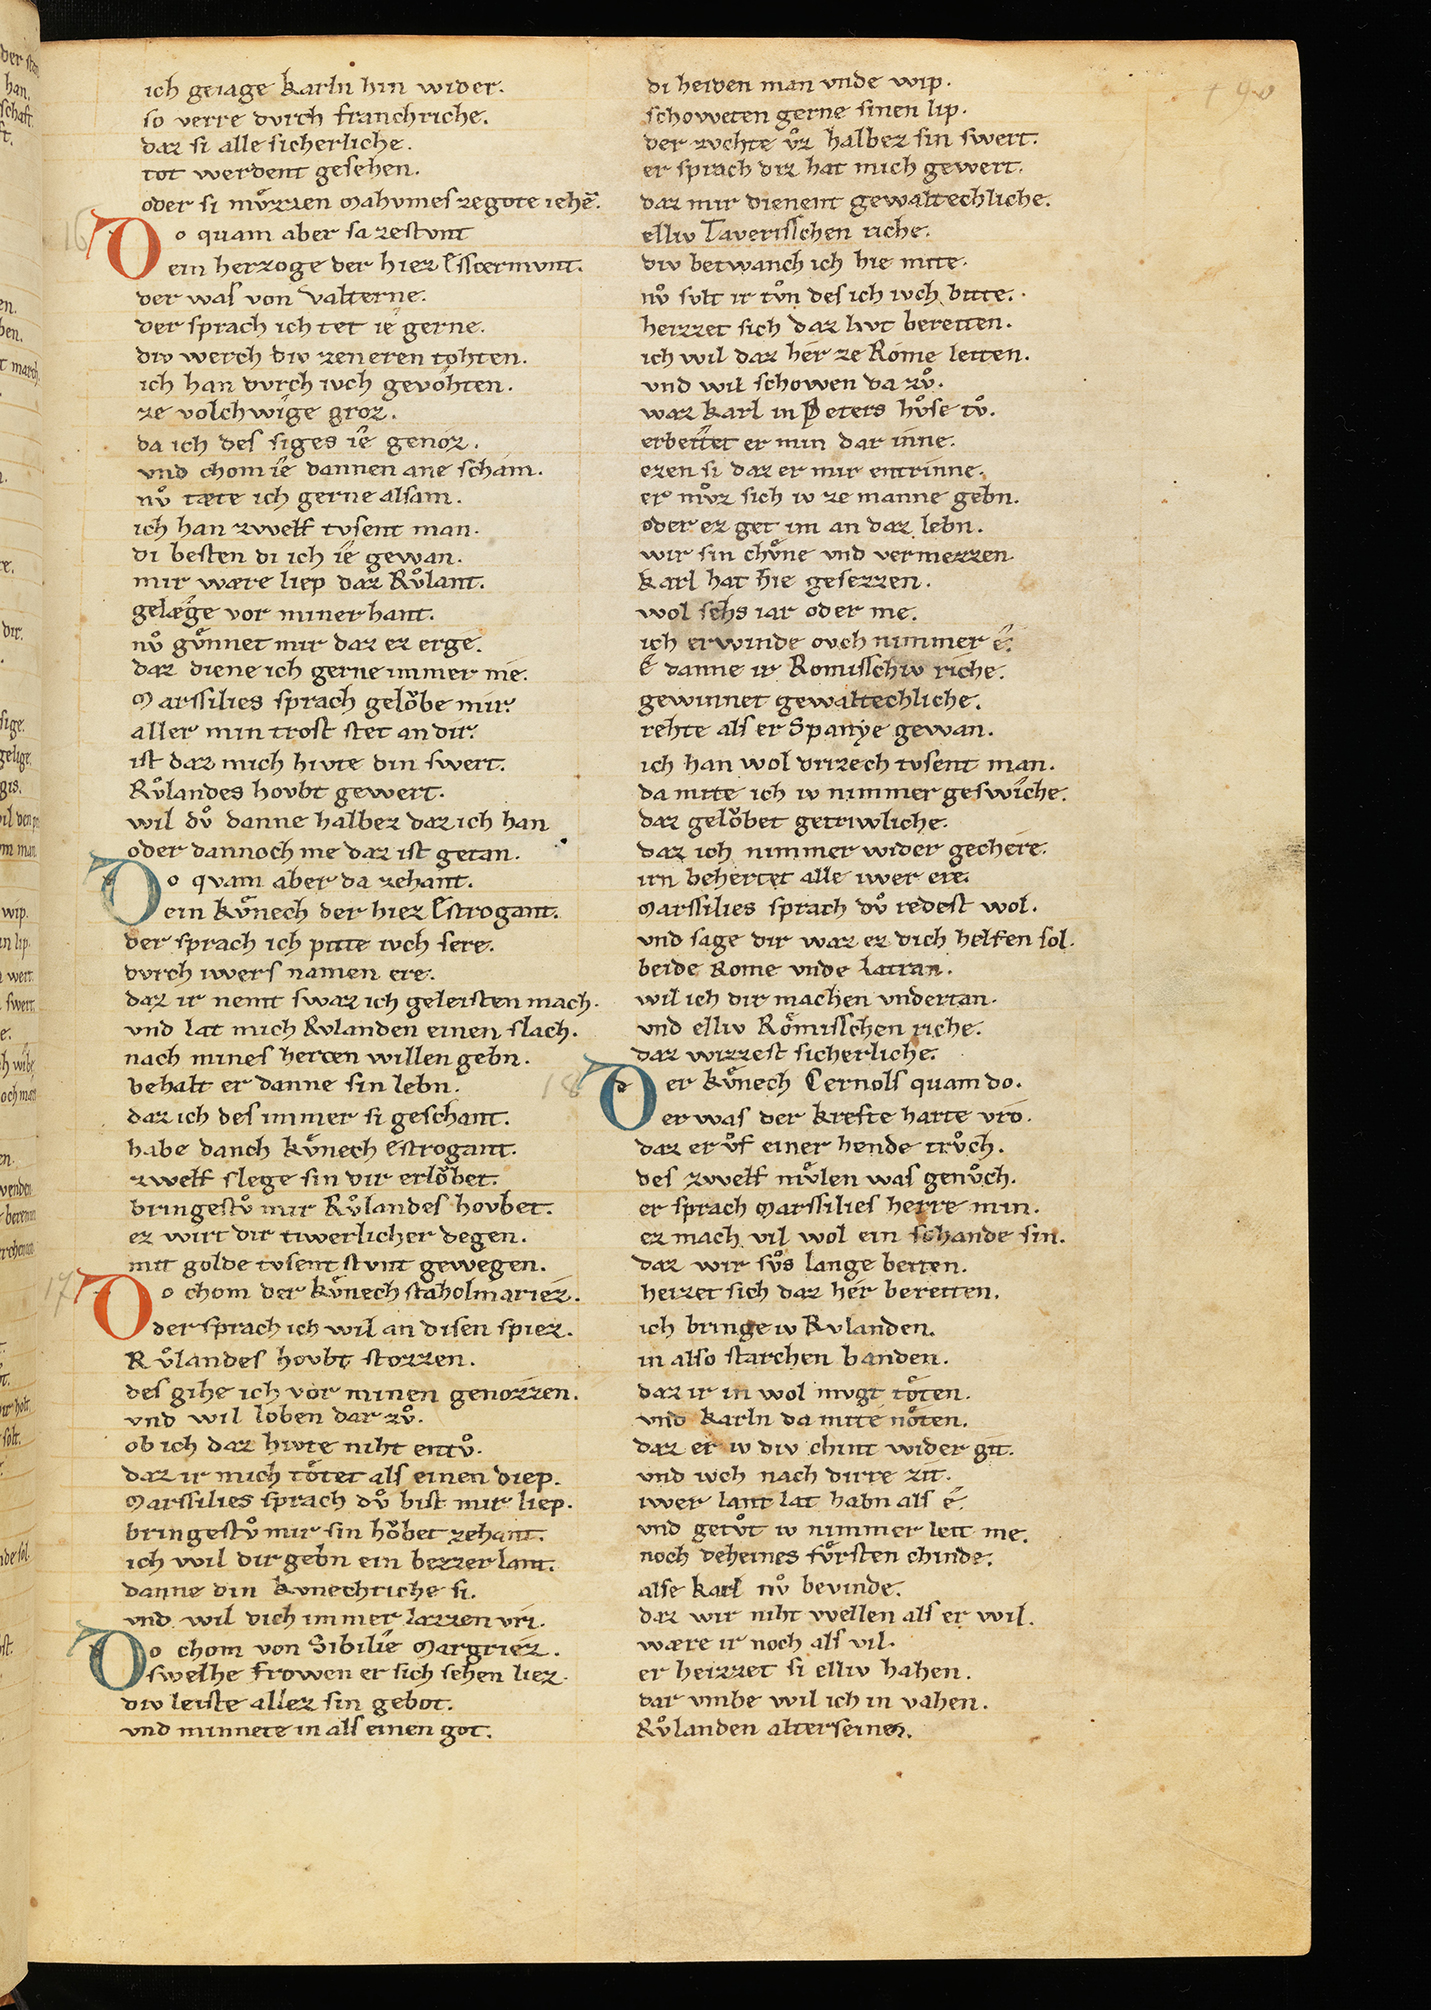 ich geiage karln hin wider.
so verre dvrch franchriche.
daz si alle sicherliche.
tot werdent gesehen.
oder si mvͦzzen Mahvmes zegote iehē.
Do quam aber sa zestvnt
ein herzoge der hiez Esscermvnt.
der was von Valterne.
der sprach ich tet ie gerne.
div werch div zen eren tohten.
ich han dvrch ivch gevohten.
ze volchwige groz.
da ich des siges ie genoz.
vnd chom ie dannen ane scham.
nvͦ tæte ich gerne alsam.
ich han zwelf tvsent man.
di besten di ich ie gewan.
mir wære liep daz Rvͦlant.
gelæge vor miner hant.
nvͦ gvͤnnet mir daz ez erge.
daz diene ich gerne immer me.
Marssilies sprach gelöbe mir.
aller min trost stet an dir.
ist daz mich hivte din swert.
Rvͦlandes hovbt gewert.
wil dvͦ danne halbez daz ich han
oder dannoch me daz ist getan.
Do qvam aber da zehant.
ein kvͤnech der hiez Estrogant.
der sprach ich pitte ivch sere.
dvrch iwers namen ere.
daz ir nemt swaz ich geleisten mach.
vnd lat mich Rvlanden einen slach.
nach mines hercen willen gebn.
behalt er danne sin lebn.
daz ich des immer si geschant.
habe danch kvͤnech Estrogant.
zwelf slege sin dir erlöbet.
bringestvͦ mir Rvͦlandes hovbet.
ez wirt dir tiwerlicher degen.
mit golde tvsent stvnt gewegen.
Do chom der kvͤnech staholmariez.
der sprach ich wil an disen spiez.
Rvͦlandes hovbt stozzen.
des gihe ich vor minen genozzen.
vnd wil loben dar zvͦ.
ob ich daz hivte niht entvͦ.
daz ir mich töͤtet als einen diep.
Marssilies sprach dvͦ bist mir liep.
bringestvͦ mir sin höbet zehant.
ich wil dir gebn ein bezzer lant.
danne din kvnechriche si.
vnd wil dich immer lazzen vri.
Do chom von Sibilie Margriez.
swelhe frowen er sich sehen liez.
div leiste allez sin gebot.
vnd minnete in als einen got.
di heiden man vnde wip.
schoweten gerne sinen lip.
der zvchte vͦz halbez sin swert.
er sprach diz hat mich gewert.
daz mir dienent gewaltechliche.
elliv Taverisschen riche.
div betwanch ich hie mite.
nvͦ svlt ir tvͦn des ich ivch bitte.
heizzet sich daz livt bereiten.
ich wil daz her ze Rome leiten.
vnd wil schowen da zvͦ.
waz karl in Peters hvͦse tvͦ.
erbeitet er min dar inne.
ezen si daz er mir entrinne.
er mvͦz sich iv ze manne gebn.
oder ez get im an daz lebn.
wir sin chvͤne vnd vermezzen
karl hat hie gesezzen.
wol sehs iar oder me.
ich erwinde ovch nimmer e.
E danne ir Romisschiv riche.
gewinnet gewaltechliche.
rehte als er Spanye gewan.
ich han wol drizech tvsent man.
da mite ich iv nimmer geswiche.
daz gelöbet getriwliche.
daz ich nimmer wider gechere.
irn behertet alle iwer ere.
Marssilies sprach dvͦ redest wol.
vnd sage dir waz ez dich helfen sol.
beide Rome vnde Latran.
wil ich dir machen vndertan.
vnd elliv Römisschen riche.
daz wizzest sicherliche.
Der kvͤnech Cernols quam do.
er was der krefte harte vro.
daz er vͦf einer hende trvͦch.
des zwelf mvͤlen was genvͦch.
er sprach Marssilies herre min.
ez mach vil wol ein schande sin.
daz wir svͦs lange beiten.
heizet sich daz her bereiten.
ich bringe iv Rvlanden.
in also starchen banden.
daz ir in wol mvgt töͤten.
vnd karln da mite nöͤten.
daz er iv div chint wider git.
vnd ivch nach dirre zit.
iwer lant lat habn als e.
vnd getvͦt iv nimmer leit me.
noch deheines fvͤrsten chinde.
alse karl nvͦ bevinde.
daz wir niht wellen als er wil.
wære ir noch als vil.
er heizzet si elliv hahen.
dar vmbe wil ich in vahen.
Rvͦlanden alterseinen.